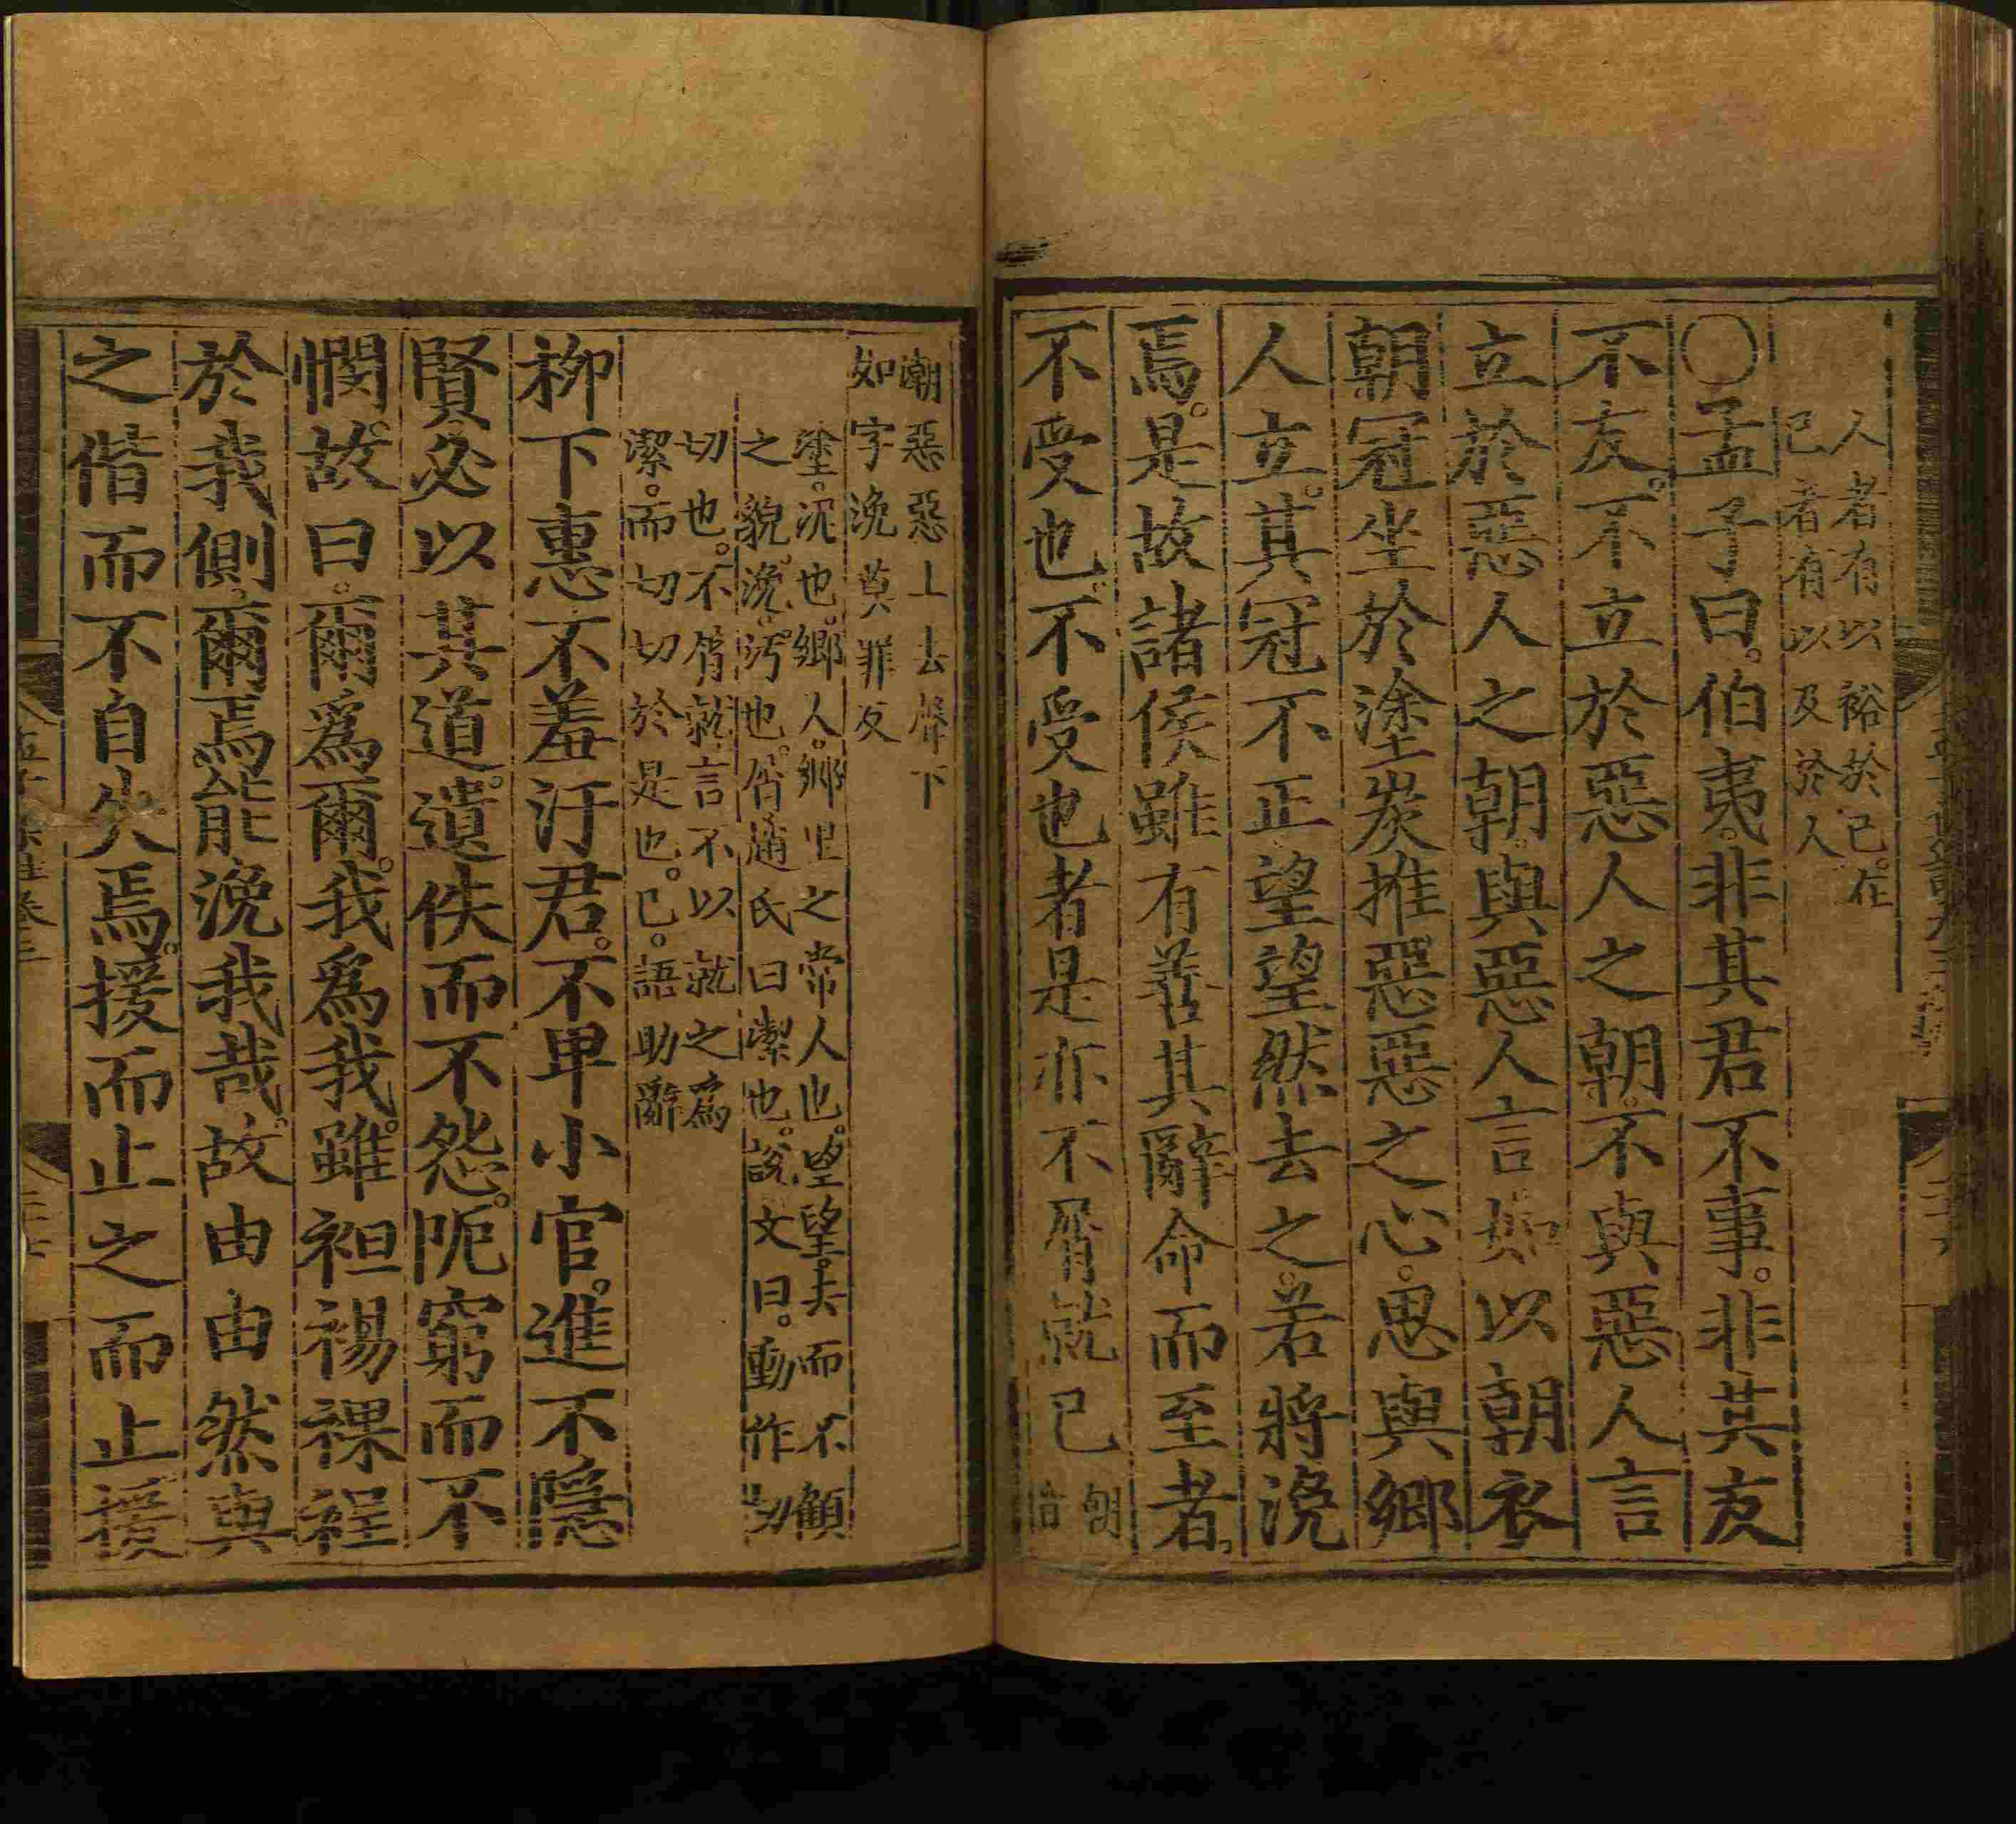 人者有以裕於己。在
己者有以及於人
○孟子曰。伯夷。非其君不事。非其友
不友。不立於惡人之朝。不與惡人言
立於惡人之朝。與惡人言如以朝衣
朝冠坐於塗炭推惡惡之心。思與鄉
人立。其冠不正望望然去之。若將浼
焉。是故諸侯雖有善其辭命而至者。
不受也。不受也者是亦不屑就已
朝音
潮惡惡上去聲下
如字浼莫罪反
塗。泥也。鄉人。鄉里之常人也。望望。去而不顧
之貌。浼。汚也。屑趙氏曰潔也。說文曰。動作切
切也。不屑就。言不以就之爲
潔。而切切於是也。已。語助辭
柳下惠不羞汙君。不卑小官。進不隱
賢必以其道。遺佚而不怨。阨窮而不
憫。故曰。爾爲爾。我爲我。雖袒裼裸裎
於我側。爾焉能浼我哉。故由由然與
之偕而不自失焉。援而止之而止援